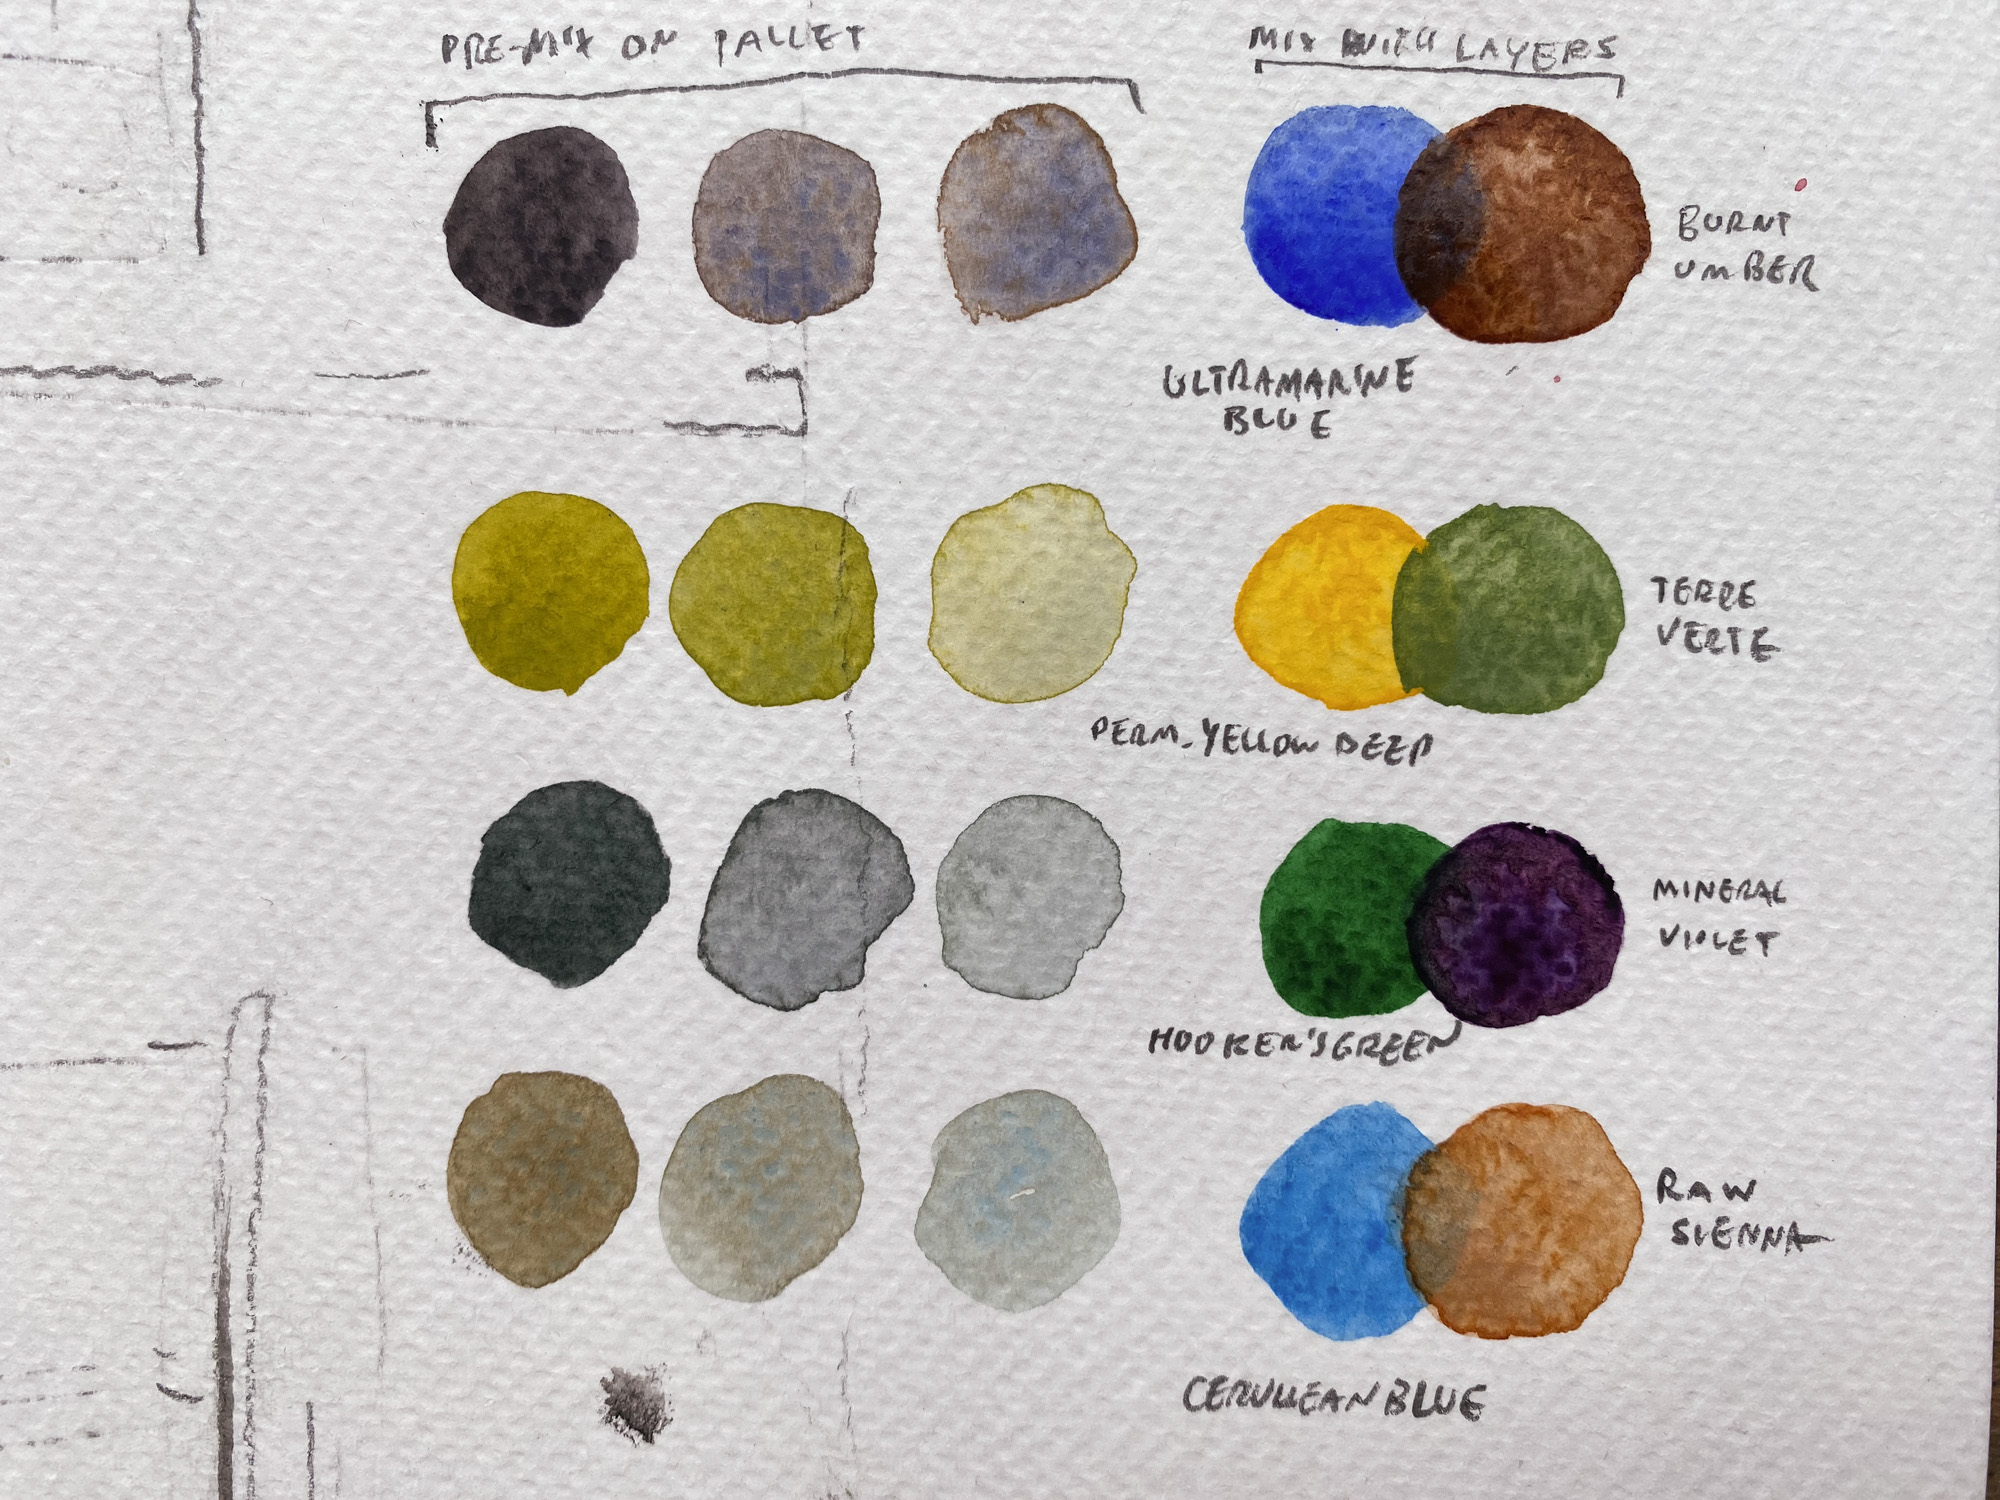 PRE-MIX ON PALLET
MIX WITH LAYERS
BURNT
UMBER
ULTRAMARINE
BLUE
TERRE
VERTE
PERM. YELLOW DEEP
MINERAL
VIOLET
HOOKER'S GREEN
RAW
SIENNA
CERULLEAN BLUE